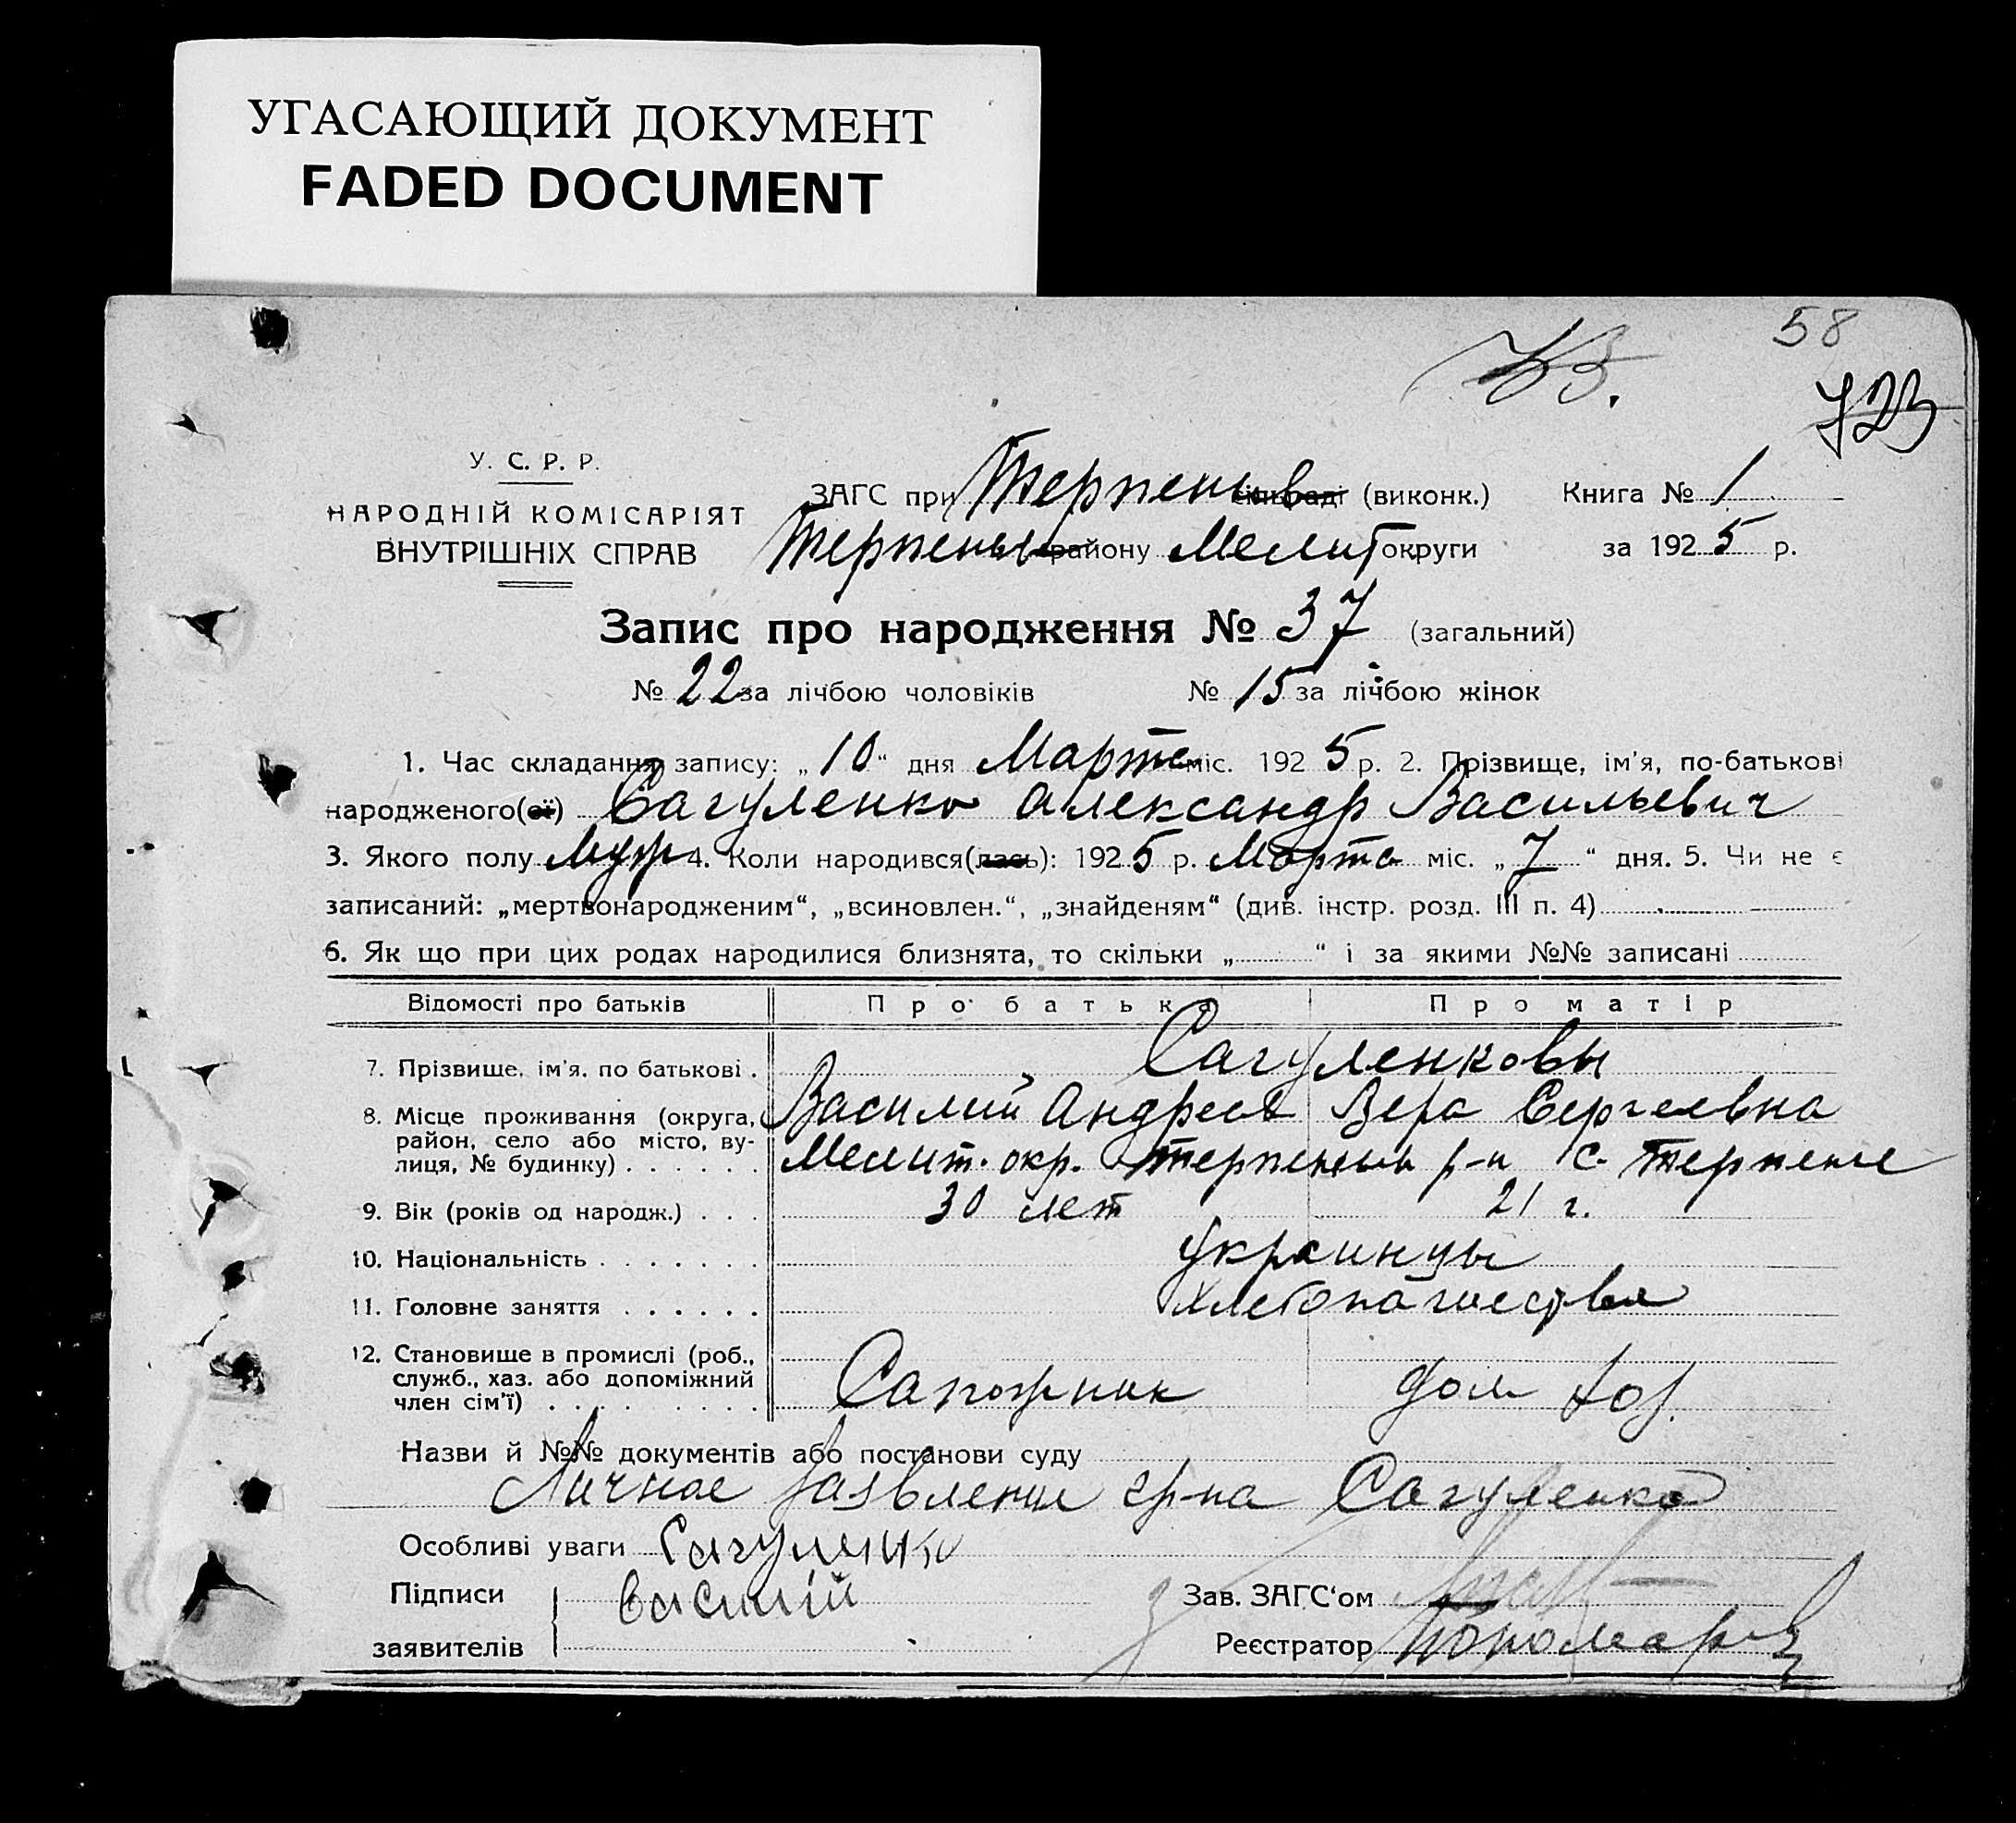 УГАСАЮЩИЙ ДОКУМЕНТ
FADED DOCUMENT
58
У. С. Р. Р.
НАРОДНІЙ КОМІСАРІЯТ
ВНУТРІШНІХ СПРАВ
ЗАГС при Терпеньев (виконк.) Книга № 1
Терпеньев району Мелит округи за 1925 р.
Запис про народження № 37 (загальний)
№ 22 за лічбою чоловіків № 15 за лічбою жінок
1. Час складання запису: „10“ дня Марта міс. 1925 р. 2. Прізвище, ім'я, по-батькові
народженого(ої) Сагуленко Александр Васильевич
3. Якого полу Муж 4. Коли народився(лась): 1925 р. Марта міс. „7“ дня. 5. Чи не є
записаний: „мертвонародженим“, „всиновлен.“, „знайденям“ (див. інстр. розд. III п. 4)
6. Як що при цих родах народилися близнята, то скільки „ “ і за якими №№ записані
Відомості про батьків Про батька Про матір
7. Прізвище, ім'я, по батькові . Сагуленковы
Василий Андреев Вера Сергеевна
8. Місце проживання (округа, район, село або місто, ву-
лиця, № будинку) . . . . . . Мелит. окр. Терпеньев р-н с. Терпенье
9. Вік (років од народж.) . . . 30 лет 21 г.
10. Національність . . . . . . . Украинцы
11. Головне заняття . . . . . . Хлебопашество
12. Становище в промислі (роб.,
служб., хаз. або допоміжний
член сім'ї) . . . . . . . . Сапожник дом хоз.
Назви й №№ документів або постанови суду
Личное заявление гр-на Сагуленко
Особливі уваги Сагуленко
Підписи Василий Зав. ЗАГС'ом
заявителів Реєстратор